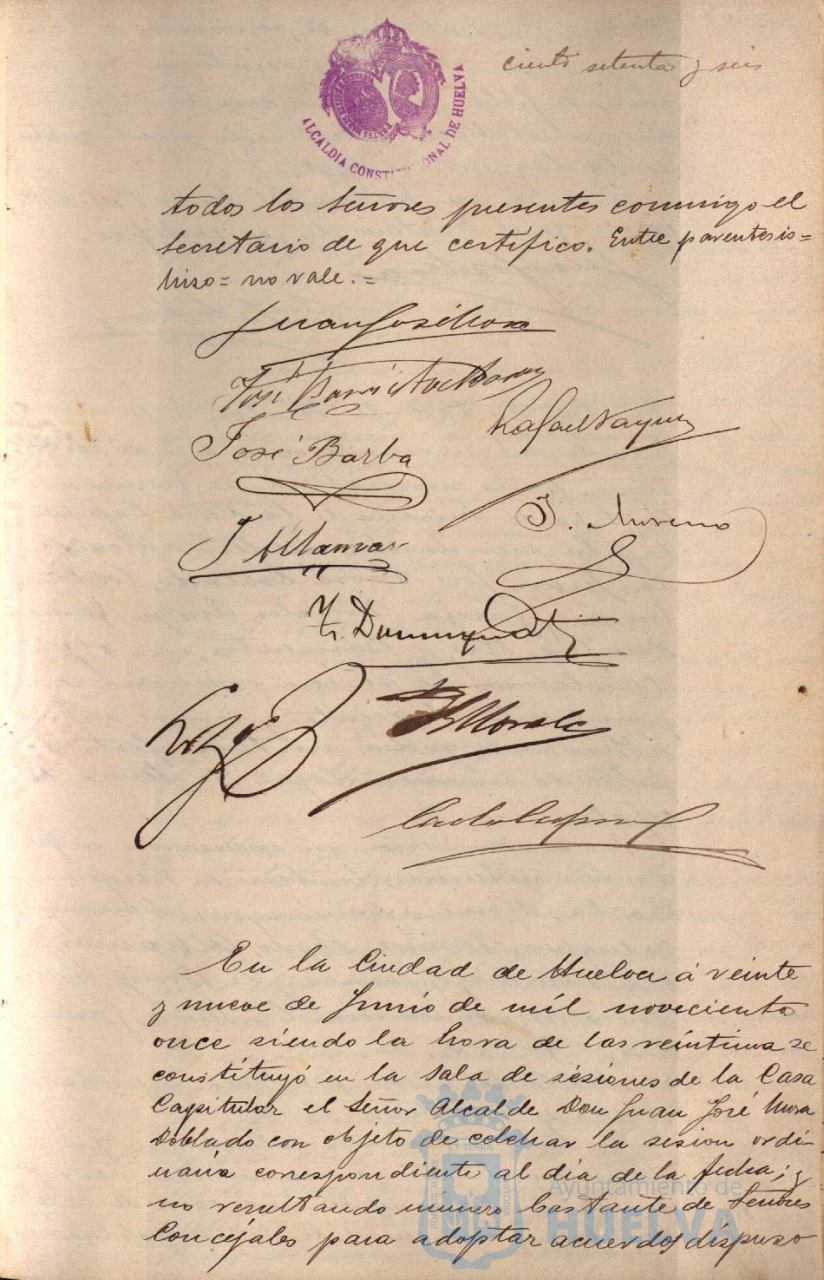 ciento setenta y seis
ALCALDIA CONSTITUCIONAL DE HUELVA
todos los Señores presentes conmigo el
Secretario de que certifico. Entre parentesis=
hizo= no vale.=
Juan José Mora
José
Rafael Vazquez
José Barba
J. Moreno
T. Dominguez
Morales
En la Ciudad de Huelva á veinte
y nueve de Junio de mil noveciento
once siendo la hora de las veintiuna se
constituyó en la Sala de sesiones de la Casa
Capitular el Señor Alcalde Don Juan José Mora
Doblado con objeto de celebrar la sesion ordi-
naria correspondiente al dia de la fecha; y
no resultando número bastante de Señores
Concejales para adoptar acuerdos dispuso
Ayuntamiento de
HUELVA